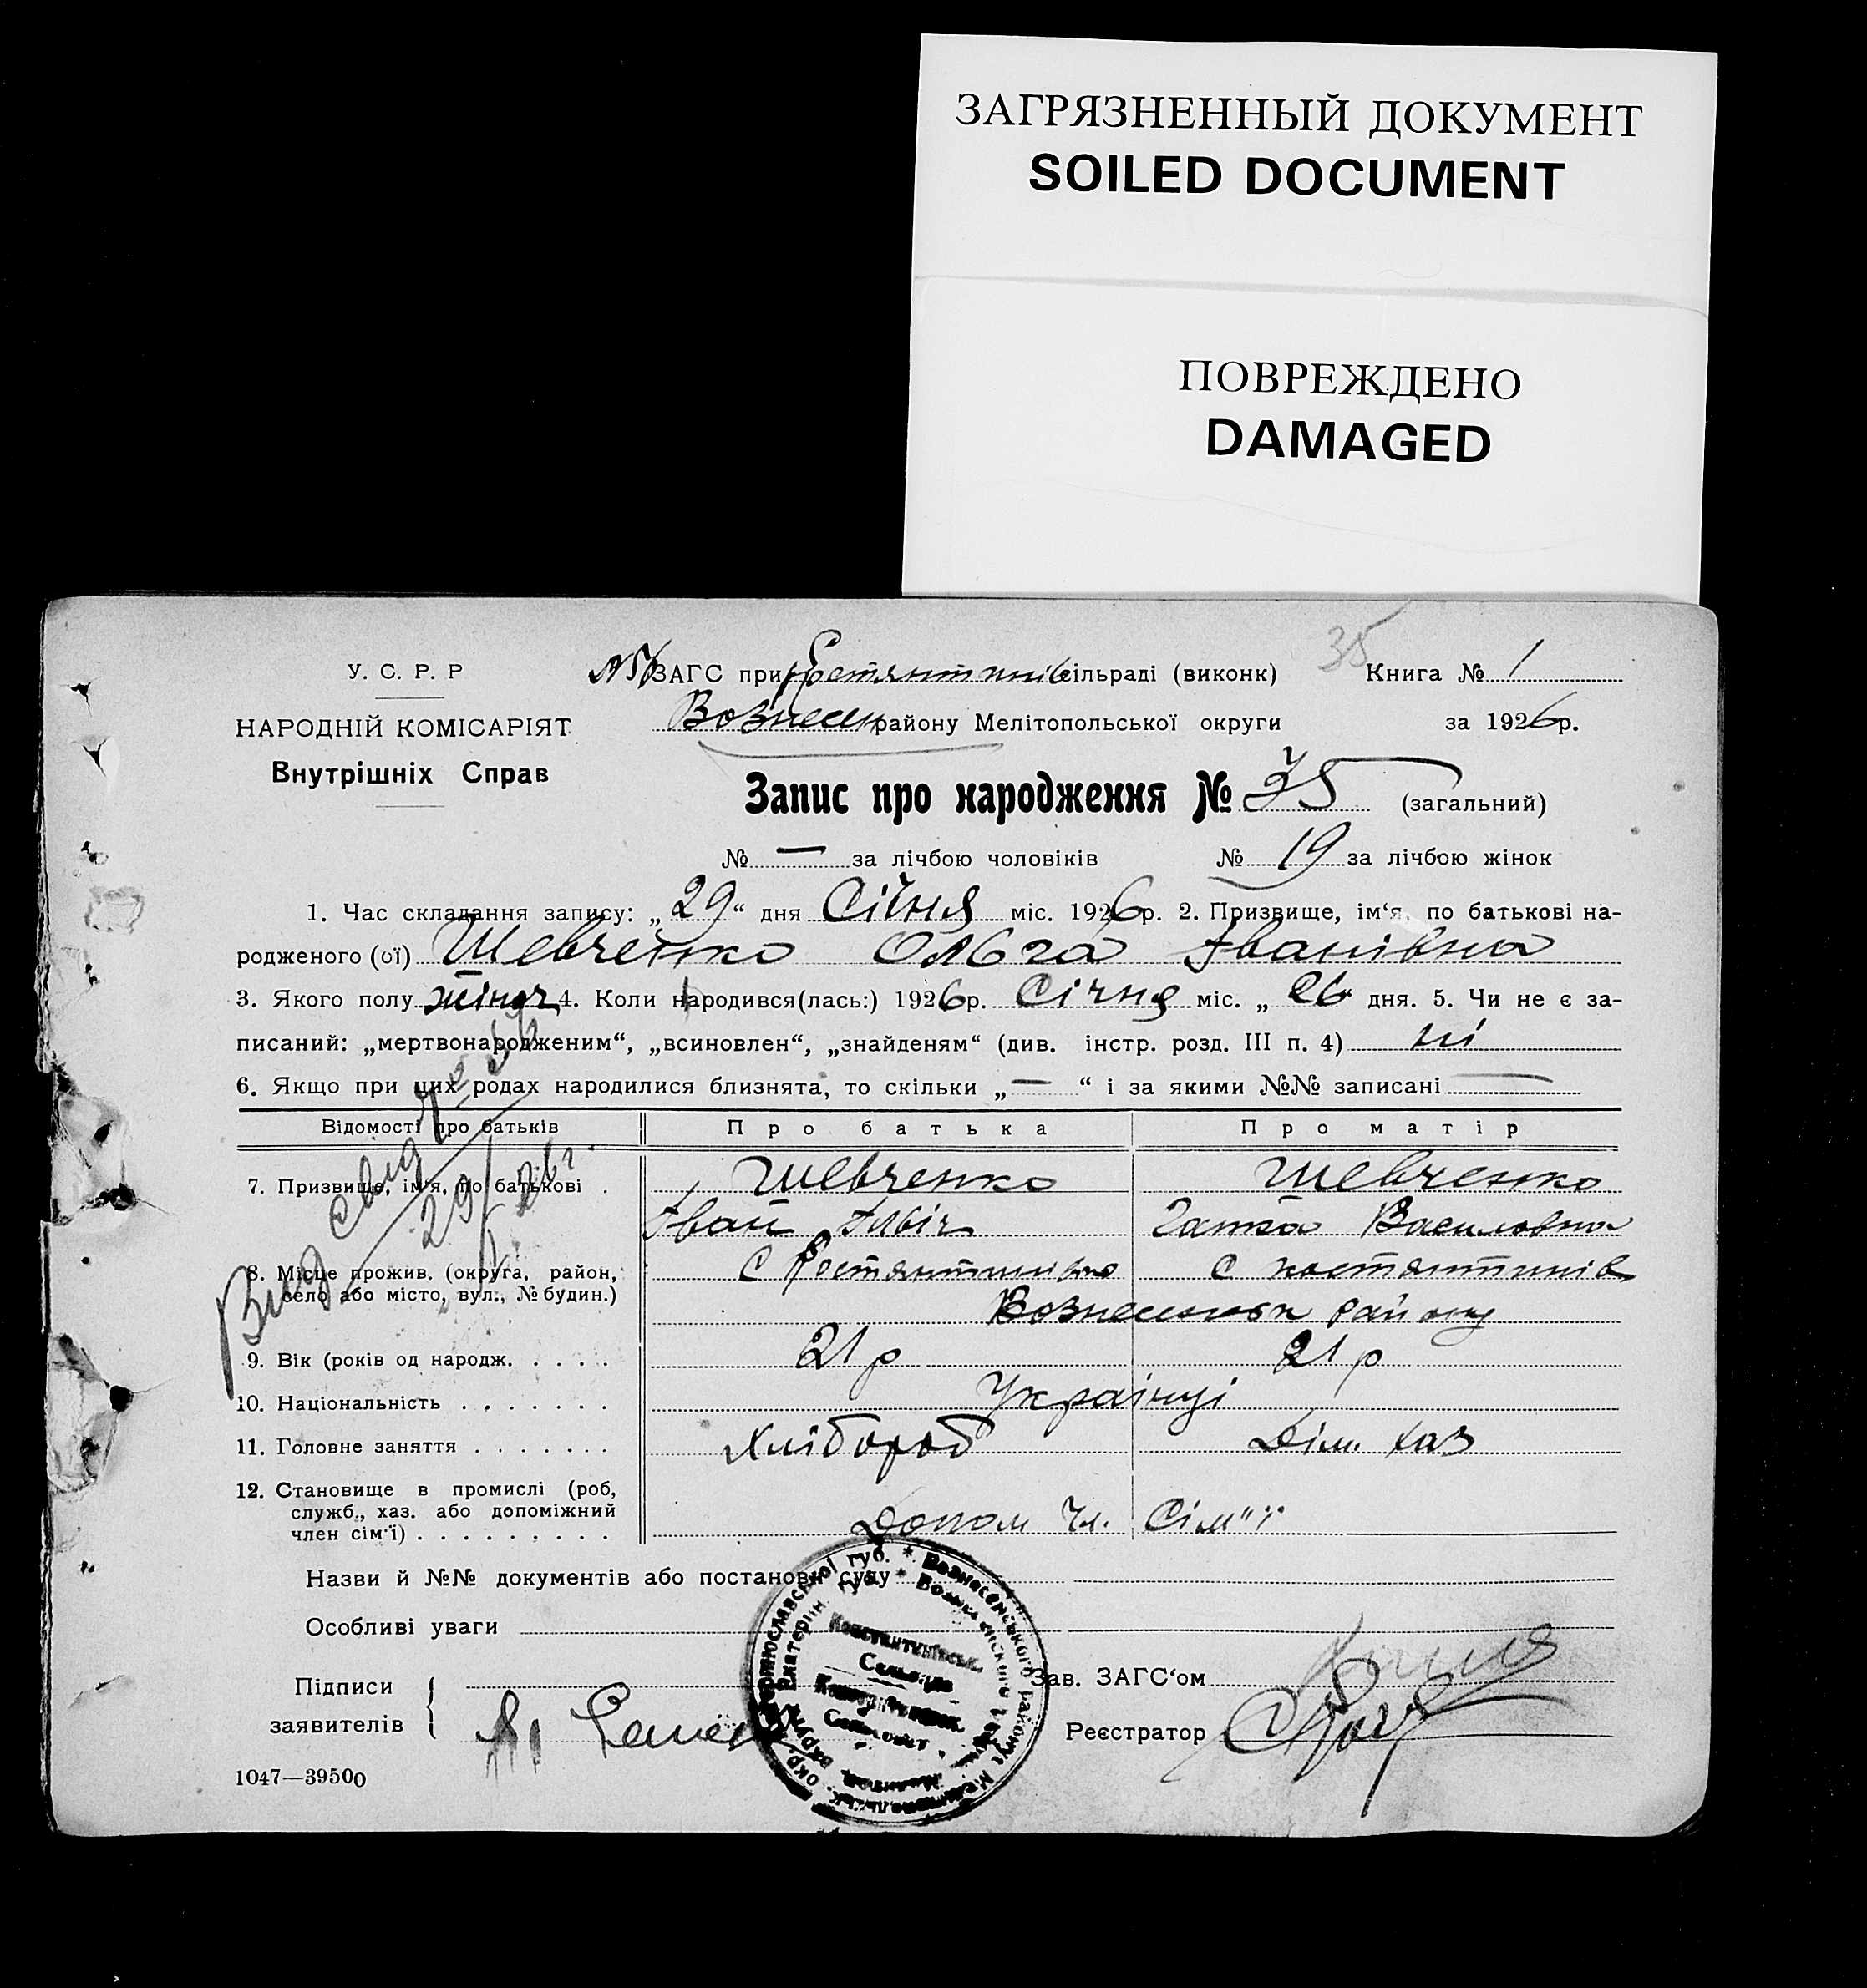 ЗАГРЯЗНЕННЫЙ ДОКУМЕНТ
SOILED DOCUMENT
ПОВРЕЖДЕНО
DAMAGED
35
У. С. Р. Р
НАРОДНІЙ КОМІСАРІЯТ
Внутрішніх Справ
ЗАГС при Костянтинів сільраді (виконк)
Книга № 1
Вознесен району Мелітопольської округи
за 1926р.
Запис про народження № 35 (загальний)
№ — за лічбою чоловіків № 19 за лічбою жінок
1. Час складання запису: „29“ дня Січня міс. 1926р. 2. Призвище, ім‘я, по батькові на-
родженого (ої) Шевченко Ольга Іванівна
3. Якого полу жіноч 4. Коли народився(лась:) 1926р. Січня міс. „26“ дня. 5. Чи не є за-
писаний: „мертвонародженим“, „всиновлен“, „знайденям“ (див. інстр. розд. III п. 4) ні
6. Якщо при цих родах народилися близнята, то скільки „—“ і за якими №№ записані —
Відомості про батьків Про батька Про матір
7. Призвище, ім‘я, по батькові . Шевченко Шевченко
Іван Василовна
8. Місце прожив. (округа, район, С Костянтинівка С костянтинів
село або місто, вул., № будин.)
Вознесенськ району
9. Вік (років од народж. . . . . 21 р 21 р
10. Національність . . . . . . . Українці
11. Головне заняття . . . . . . . Хлібороб Дім. хаз
12. Становище в промислі (роб,
служб., хаз. або допоміжний
член сім‘ї) . . . . . . . . . Допом чл. Сім"ї
Вид свид
29/I 26 г.
Назви й №№ документів або постанови суду
Особливі уваги
Підписи
заявителів
Зав. ЗАГС‘ом
Реєстратор
1047—39500